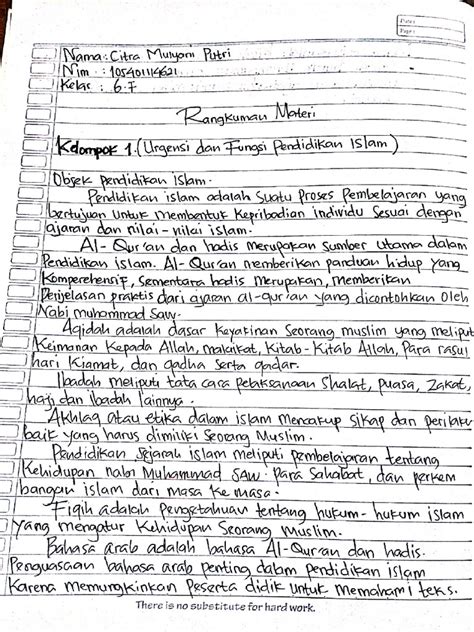 Date:
Page:
Nama : Citra Mulyani Putri
Nim : 105401114621
Kelas : 6.7
Rangkuman Materi
Kelompok 1. (Urgensi dan Fungsi Pendidikan Islam)
Objek pendidikan islam.
Pendidikan islam adalah Suatu Proses Pembelajaran yang
bertujuan untuk membentuk Kepribadian individu Sesuai dengan
ajaran dan nilai-nilai islam.
Al-Qur'an dan hadis merupakan sumber utama dalam
Pendidikan islam. Al-Qur'an memberikan panduan hidup yang
Komperehensif, Sementara hadis merupakan, memberikan
Penjelasan praktis dari ajaran al-qur'an yang dicontohkan oleh
Nabi muhammad Saw.
Aqidah adalah dasar Keyakinan Seorang muslim yang meliput
Keimanan Kepada Allah, malaikat, Kitab-Kitab Allah, Para rasul
hari Kiamat, dan qadha serta qadar.
Ibadah meliputi tata cara pelaksanaan Shalat, puasa, Zakat,
haji dan Ibadah lainnya.
Akhlaq atau etika dalam islam mencakup sikap dan perilaku
baik yang harus dimiliki Seorang Muslim.
Pendidikan Sejarah islam meliputi pembelajaran tentang
Kehidupan nabi Muhammad SAW. Para Sahabat, dan perkem
bangan islam dari masa Ke masa.
Fiqih adalah Pengetahuan tentang hukum-hukum islam
yang mengatur Kehidupan Seorang muslim.
Bahasa arab adalah bahasa Al-Qur'an dan hadis.
Penguasaan bahasa arab penting dalam pendidikan islam
Karena memungkinkan Peserta didik untuk memahami teks.
There is no substitute for hard work.